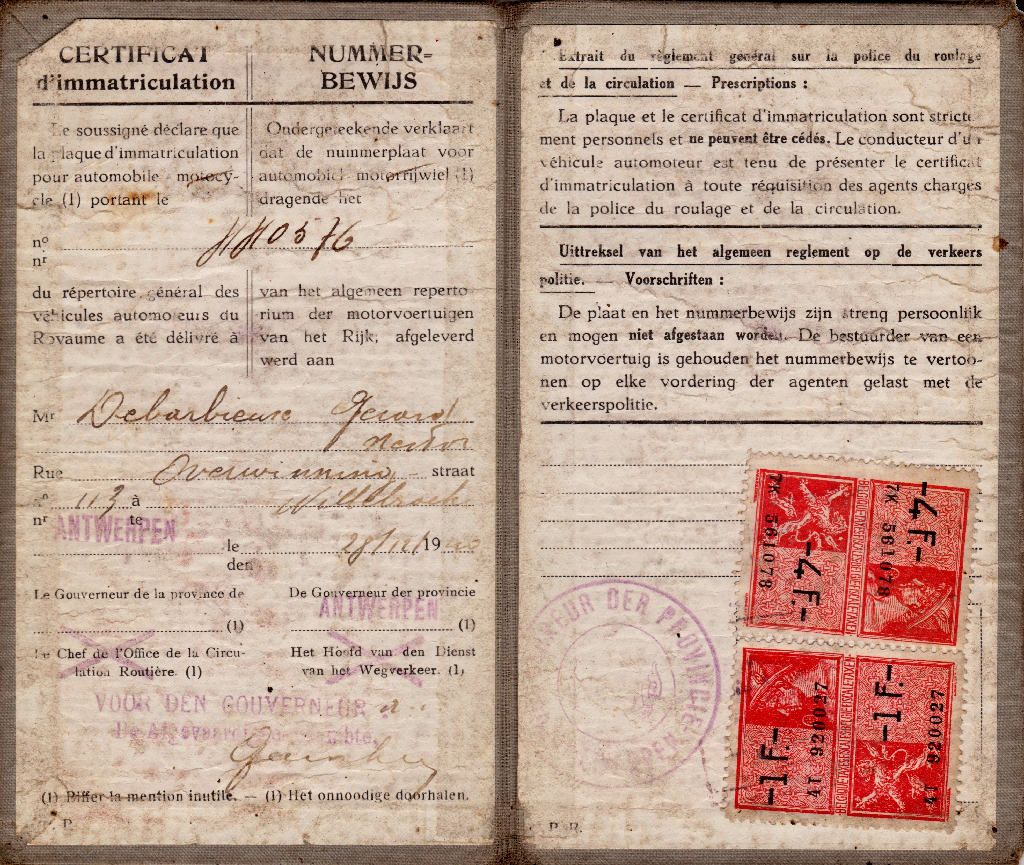 CERTIFICAT
d'immatriculation
Le soussigné déclare que
la plaque d'immatriculation
pour automobile motocy-
cle (1) portant le
NUMMER-
BEWIJS
Ondergeteekende verklaart
dat de nummerplaat voor
automobiel motorrijwiel (1)
dragende het
nº
nr
0576
du répertoire général des
véhicules automoteurs du
Royaume a été délivré à
van het algemeen reperto
rium der motorvoertuigen
van het Rijk, afgeleverd
werd aan
Mr Debarbieux Gerard
Nestor
Rue Overwinning - straat
nº 113 à Willebroek
nr te
ANTWERPEN
le 28/12/19
den
Le Gouverneur de la province de
(1)
De Gouverneur der provincie
ANTWERPEN
(1)
Le Chef de l'Office de la Circu-
lation Routière. (1)
Het Hoofd van den Dienst
van het Wegverkeer. (1)
VOOR DEN GOUVERNEUR
De Afgevaardigde
(1) Biffer la mention inutile. — (1) Het onnoodige doorhalen.
P.
Extrait du règlement général sur la police du roulage
et de la circulation — Prescriptions :
La plaque et le certificat d'immatriculation sont stricte
ment personnels et ne peuvent être cédés. Le conducteur d'un
véhicule automoteur est tenu de présenter le certificat
d'immatriculation à toute réquisition des agents charges
de la police du roulage et de la circulation.
Uittreksel van het algemeen reglement op de verkeers
politie. — Voorschriften :
De plaat en het nummerbewijs zijn streng persoonlijk
en mogen niet afgestaan worden. De bestuurder van een
motorvoertuig is gehouden het nummerbewijs te vertoo-
nen op elke vordering der agenten gelast met de
verkeerspolitie.
7K 561078
-4F.-
7K 561078
-4F.-
-1F.-
4T 920027
-1F.-
4T 920027
DER PROVINCIE
P. R.